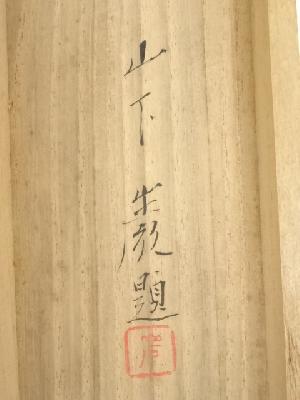 山下巌題